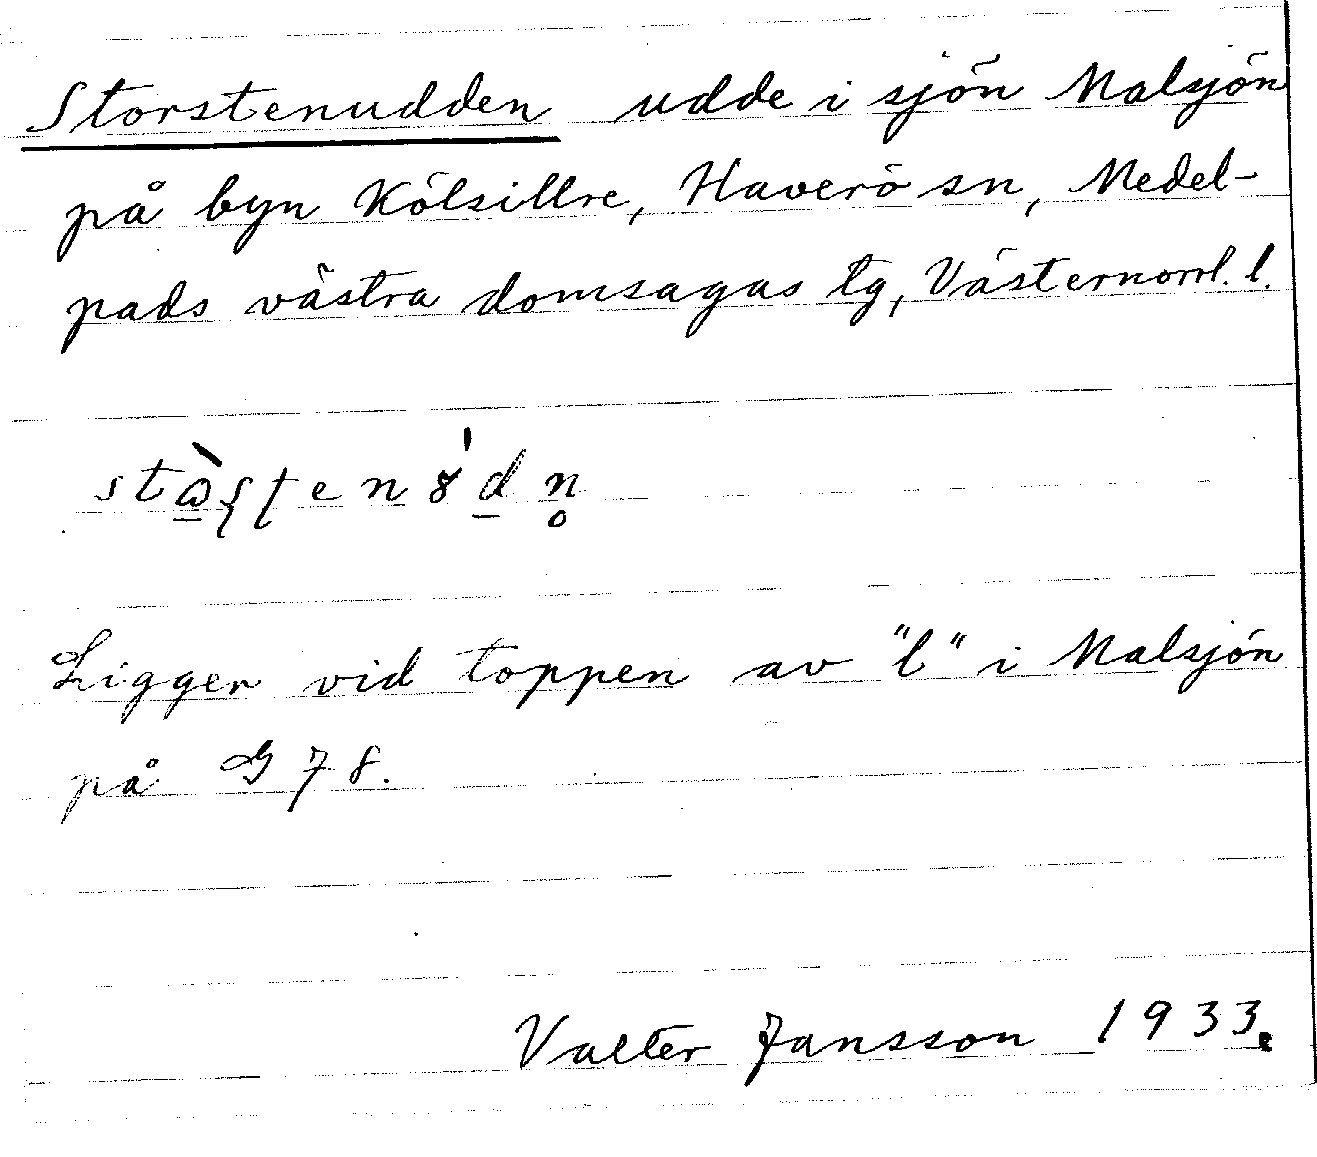 Storstenudden udde i sjön Malsjön
på byn Kölsillre, Haverö sn, Medel-
pads västra domsagas tg, Västernorrl. l.
Ligger vid toppen av "l" i Malsjön
på G 78.
Valter Jansson 1933.